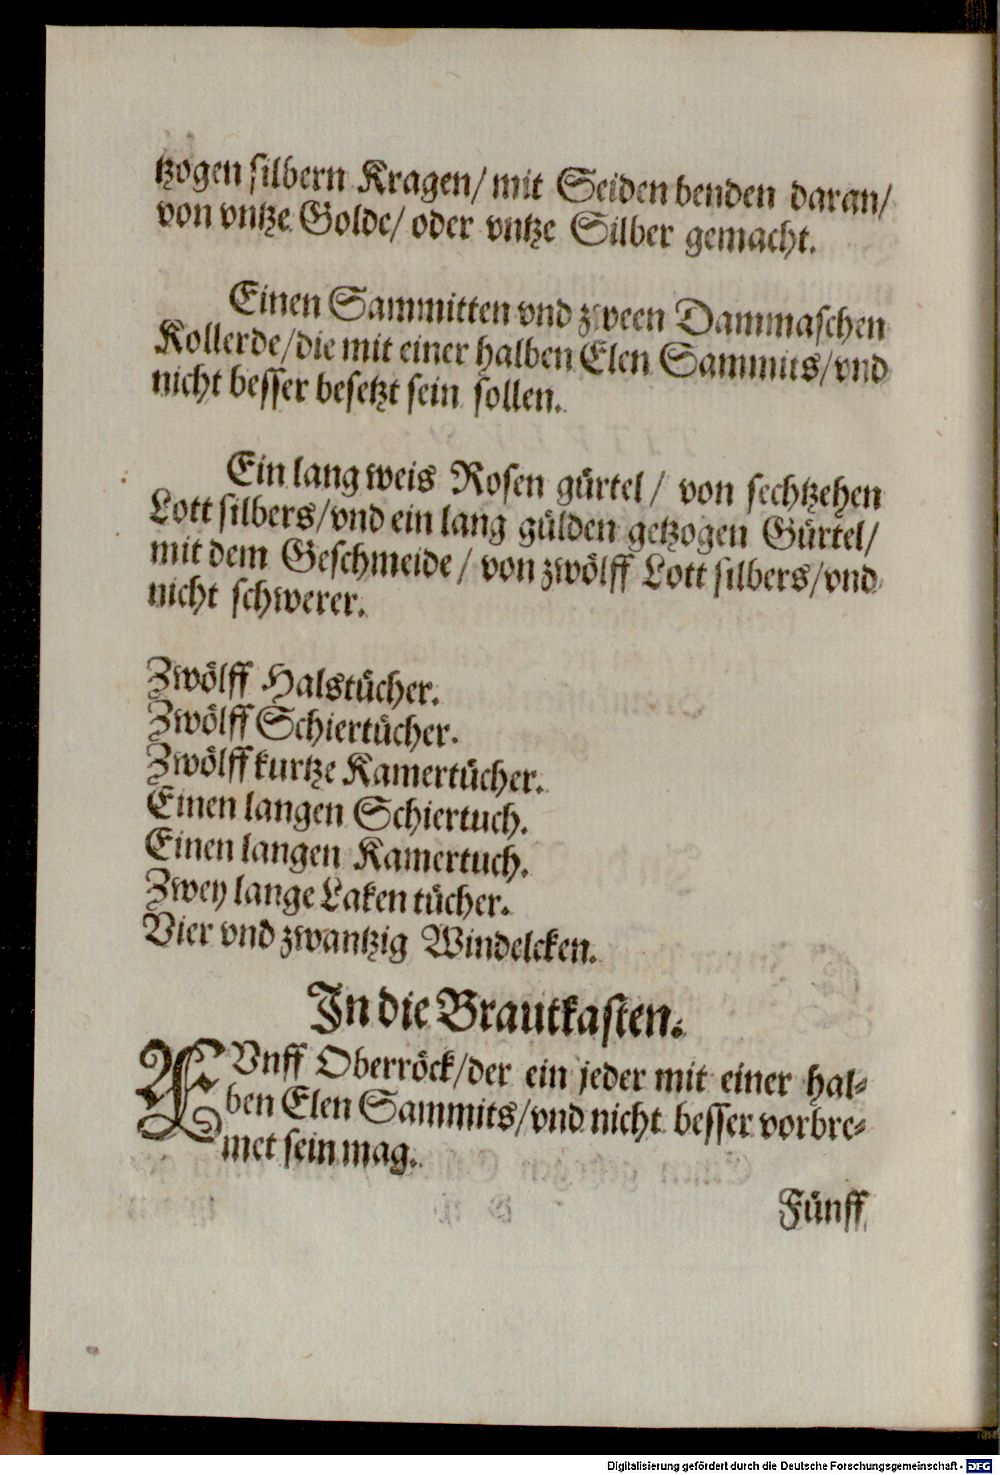 tzogen silbern Kragen/ mit Seiden benden daran/
von vntze Golde/ oder vntze Silber gemacht.
Einen Sammitten vnd zween Dammaschen
Kollerde/die mit einer halben Elen Sammits/vnd
nicht besser besetzt sein sollen.
Ein lang weis Rosen gürtel/ von sechtzehen
Lott silbers/vnd ein lang gülden getzogen Gürtel/
mit dem Geschmeide/ von zwölff Lott silbers/vnd
nicht schwerer.
Zwölff Halstücher.
Zwölff Schiertücher.
Zwölff kurtze Kamertücher.
Einen langen Schiertuch.
Einen langen Kamertuch.
Zwey lange Laken tücher.
Vier vnd zwantzig Windelcken.
In die Brautkasten.
FVnff Oberröck/der ein jeder mit einer hal-
ben Elen Sammits/vnd nicht besser vorbre-
met sein mag.
Fünff
Digitalisierung gefördert durch die Deutsche Forschungsgemeinschaft - DFG